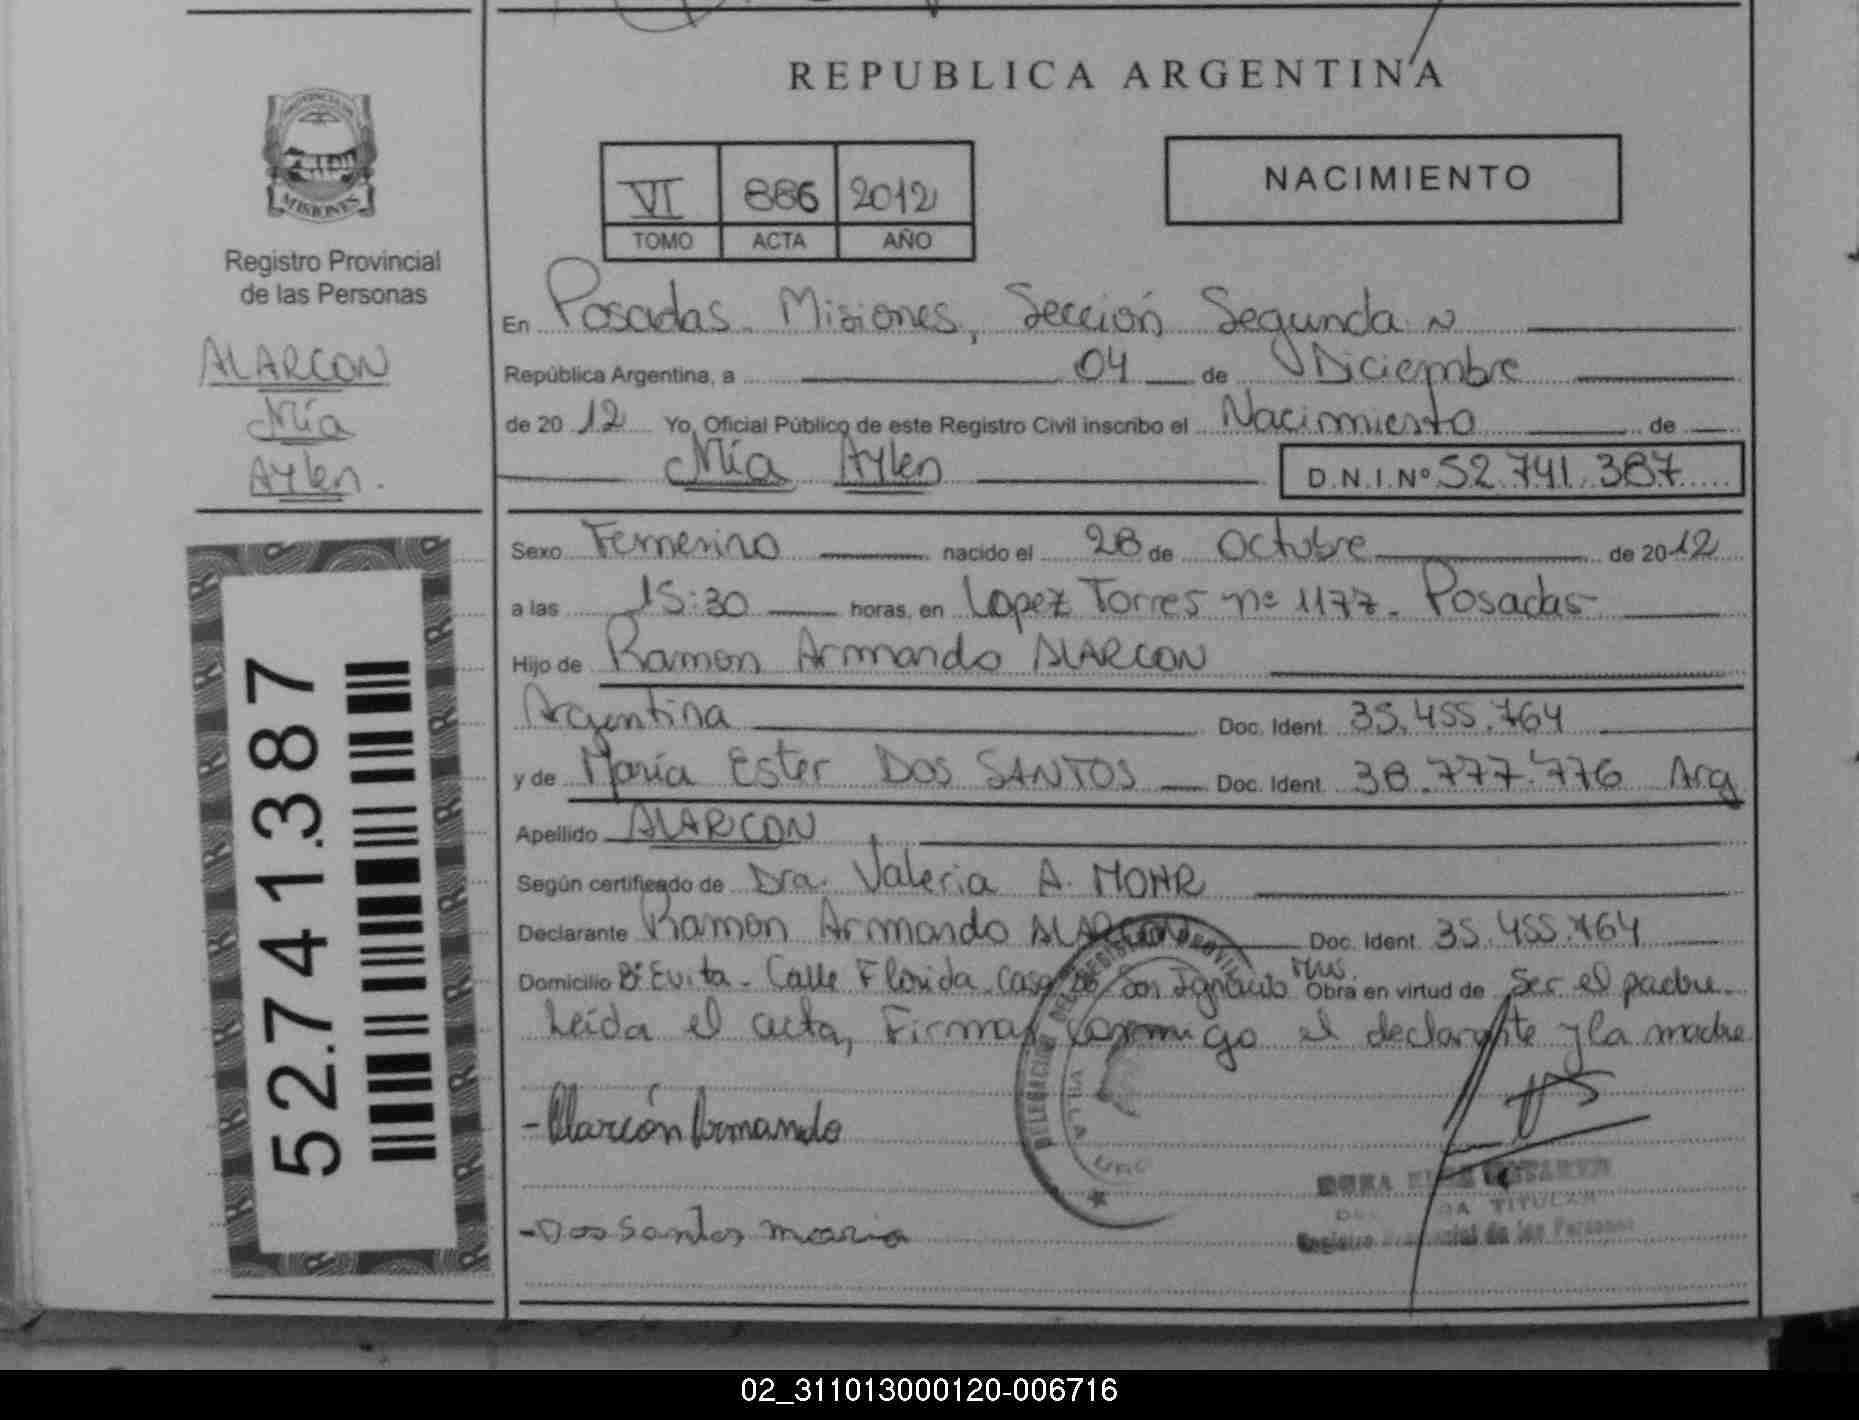 REPUBLICA ARGENTINA
PROVINCIA DE
MISIONES
Registro Provincial
de las Personas
ALARCON
Mía
Aylen.
52.741.387
VI 886 2012
TOMO ACTA AÑO
NACIMIENTO
En Posadas Misiones, Sección Segunda
República Argentina, a 04 de Diciembre
de 2012 Yo, Oficial Público de este Registro Civil inscribo el Nacimiento de
Mía Aylen D.N.I.Nº 52.741.387
Sexo Femenino nacido el 28 de Octubre de 2012
a las 15:30 horas, en Lopez Torres nº 1177. Posadas
Hijo de Ramon Armando ALARCON
Argentina Doc. Ident. 35.455.764
y de María Ester DOS SANTOS Doc. Ident. 38.777.776 Arg
Apellido ALARCON
Según certificado de Dra. Valeria A. MOHR
Declarante Ramon Armando ALARCON Doc. Ident. 35.455.764
Domicilio Bº Evita - Calle Florida Casa San Ignacio Obra en virtud de Ser el padre
Leída el acta, Firman conmigo el declarante y la madre
- Alarcón Armando
- Dos Santos maria
DELEGACION DEL REGISTRO PROVINCIAL
VILLA
TITULAR
Registro Provincial de las Personas
02_311013000120-006716